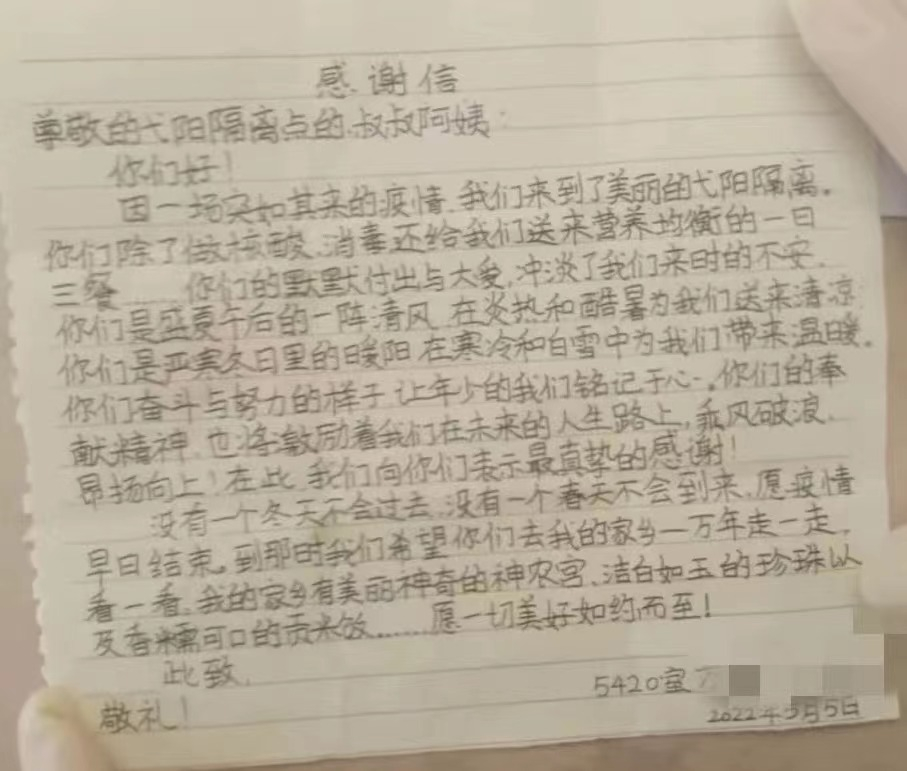 感谢信
尊敬的弋阳隔离点的叔叔阿姨：
你们好！
因一场突如其来的疫情，我们来到了美丽的弋阳隔离。
你们除了做核酸、消毒还给我们送来营养均衡的一日
三餐……你们的默默付出与大爱，冲淡了我们来时的不安，
你们是盛夏午后的一阵清风，在炎热和酷暑为我们送来清凉
你们是严寒冬日里的暖阳，在寒冷和白雪中为我们带来温暖。
你们奋斗与努力的样子，让年少的我们铭记于心。你们的奉
献精神，也将激励着我们在未来的人生路上，乘风破浪，
昂扬向上！在此，我们向你们表示最真挚的感谢！
没有一个冬天不会过去，没有一个春天不会到来，愿疫情
早日结束。到那时我们希望你们去我的家乡—万年走一走，
看一看，我的家乡有美丽神奇的神农宫、洁白如玉的珍珠以
及香糯可口的贡米饭……愿一切美好如约而至！
此致，
敬礼！
5420室
2022年5月5日